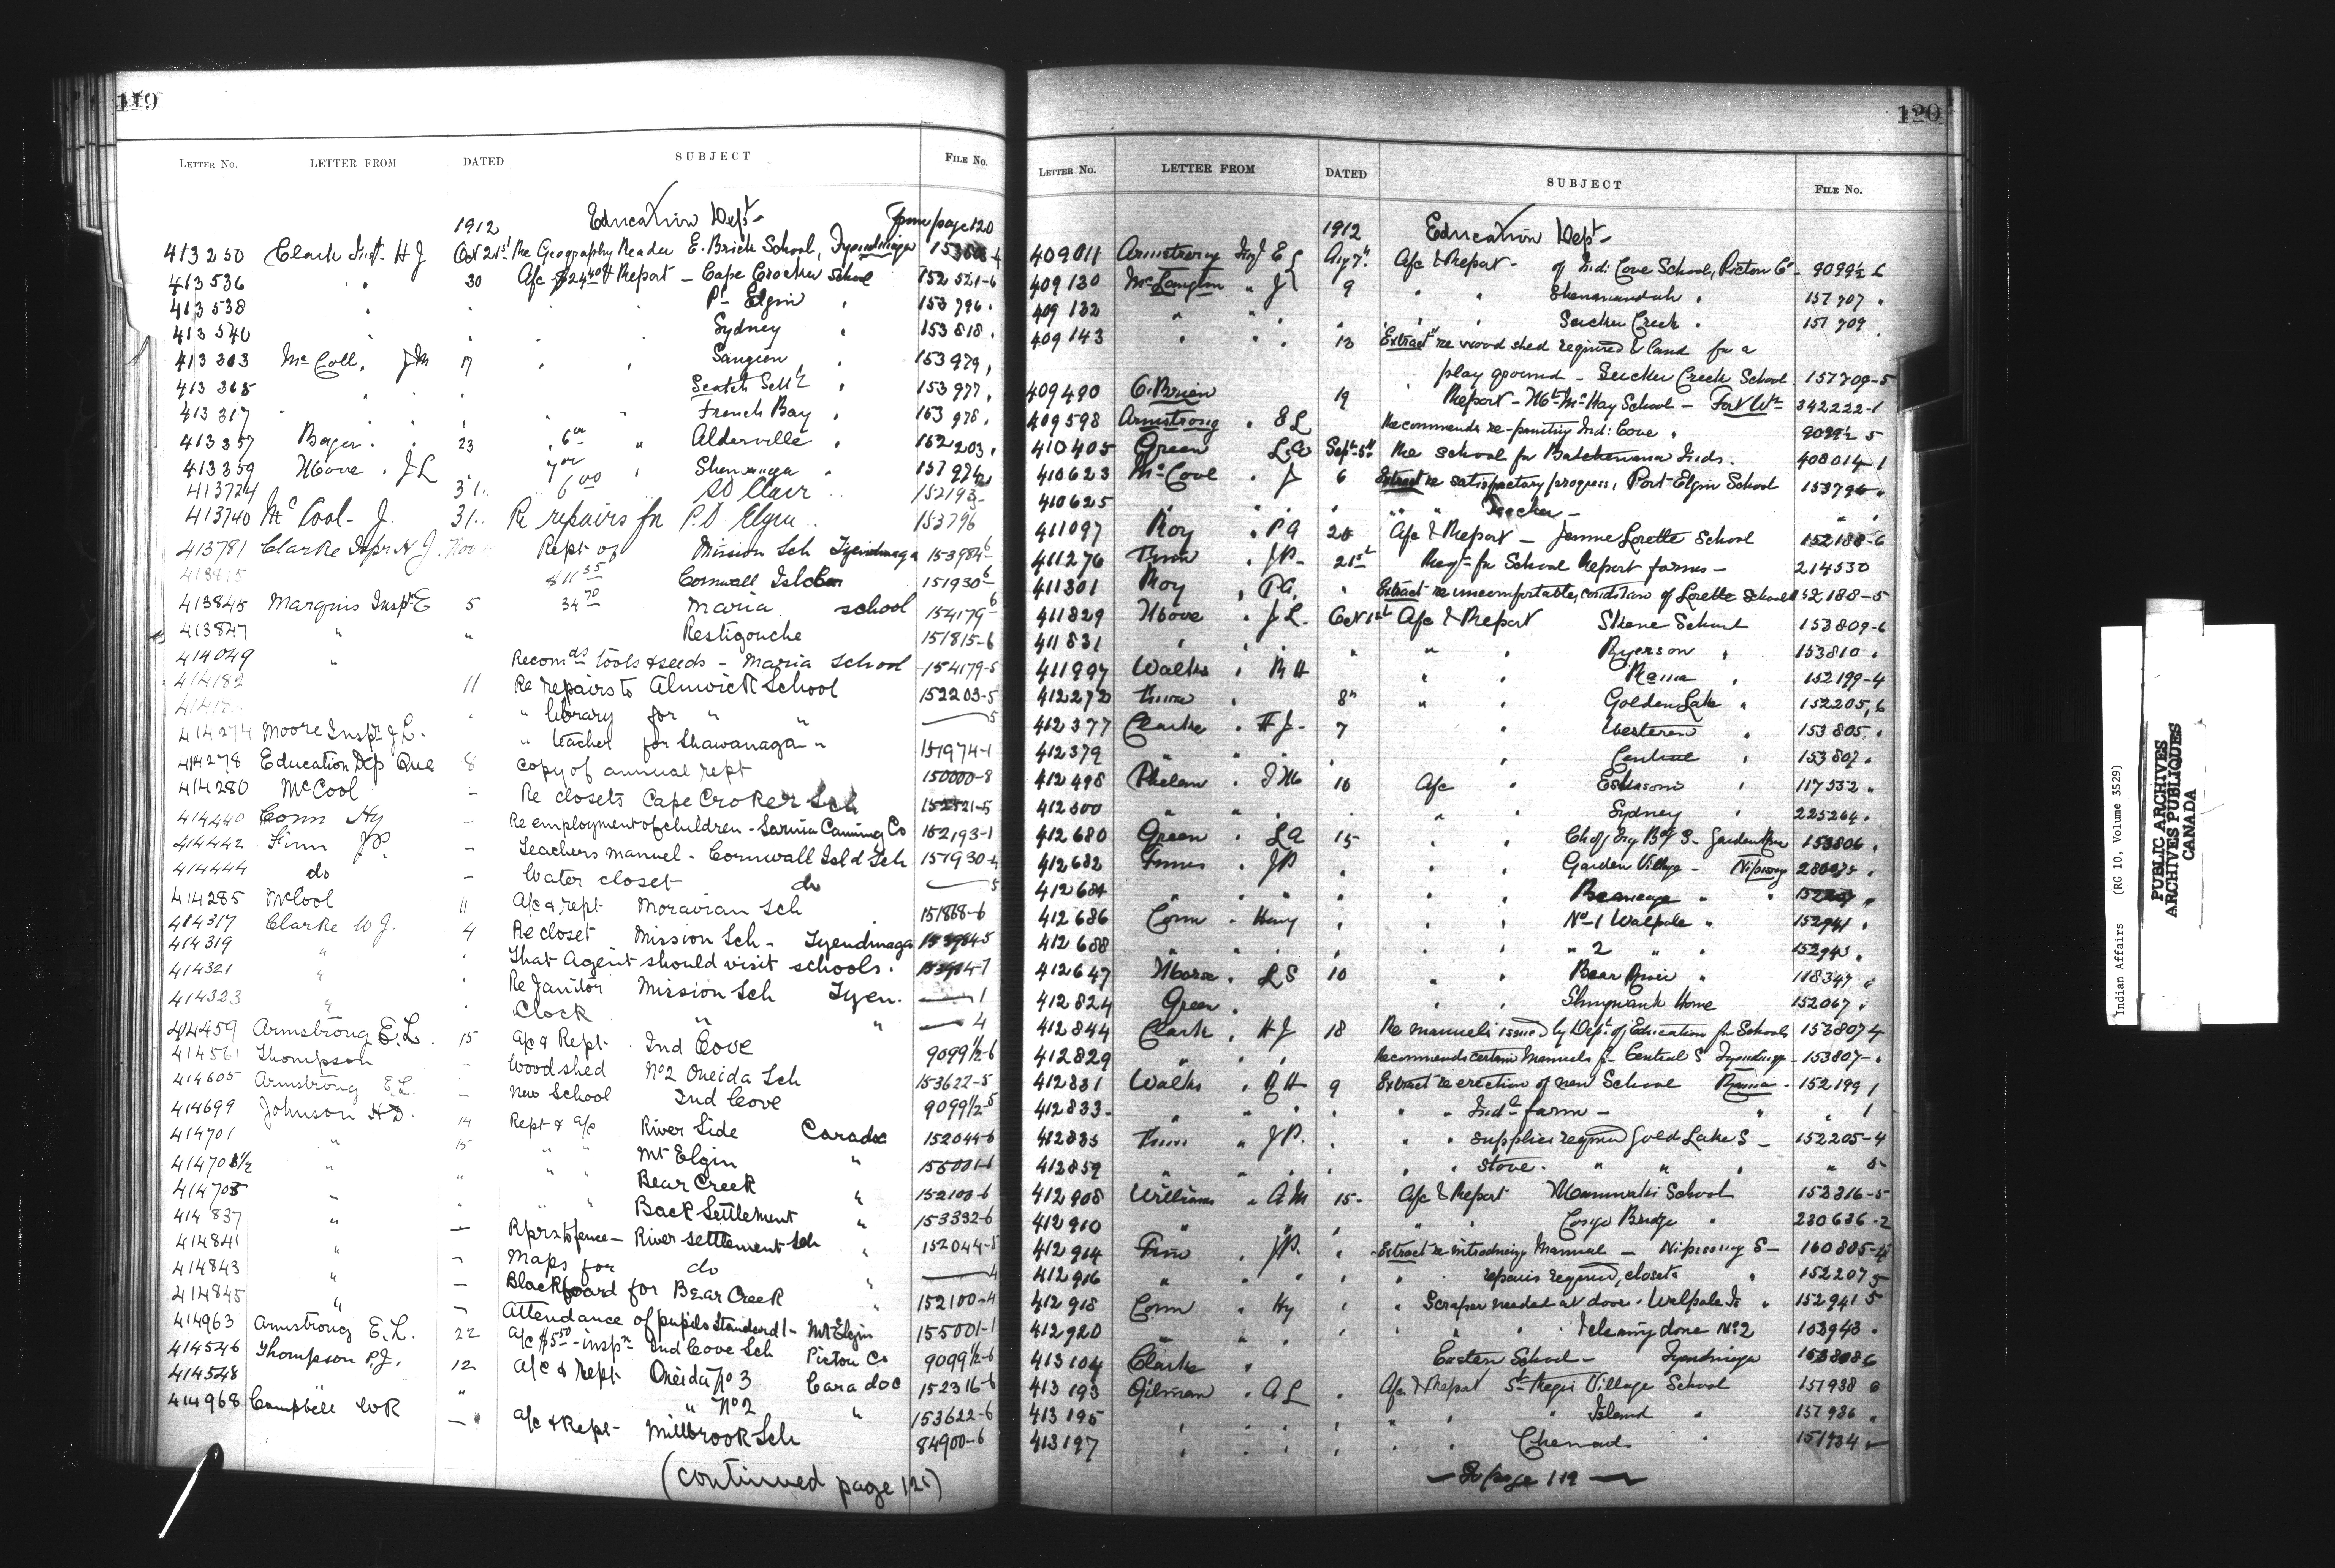 119
LETTER No. LETTER FROM DATED SUBJECT FILE No.
1912 Education Dept from page 120
413250 Clark Inst. H J Oct 21st Re Geography Reader E. Brick School, Tyendinaga
413536 " 30 A/c $24.40 & Report - Cape Crocker School 152521-6
413538 " " Pt Elgin " 153796 "
413540 Sydney " 153818 "
413303 McColl, J M 7 " " Saugeen " 153979 "
413365 " Scotch Settt " 153977 "
413317 " French Bay " 153978 "
413357 " 23 " 6 " Alderville " 152203 "
413359 Moore " J L 7 " Shawanaga "
413724 31 6 00 St Clair " 152193-
413740 McCool- J. 31 " Re repairs for Pt Elgin " 153796
413781 Clarke Inspr H J. Nov Rept of Mission Sch Tyendinaga 153984-6
$11 35 Cornwall Island 151930-6
413845 Marquis Inspr E 5 34 70 Maria school 154179-6
413847 " " Restigouche 151815-6
414049 " Recomds tools & seeds - Maria School 154179-5
414182 11 Re repairs to Alnwick School 152203-5
" library for " " 5
414274 Moore Inspr J L. " teacher for Shawanaga " 151974-1
414278 Education Dep Que 8 Copy of annual rept 150000-8
414280 McCool - Re closets Cape Croker Sch 152521-5
414440 Conn Hy - Re employment of children - Sarnia Canning Co 152193-1
414442 Finn J P. - Teachers manuel - Cornwall Isld Sch 151930-4
414444 do - Water closet do 5
414285 McCool 11 A/c & rept Moravian Sch 151868-6
414317 Clarke W J. 4 Re closet Mission Sch - Tyendinaga 153984-5
414319 " " That Agent should visit schools. 153984-7
414321 " " Re Janitor Mission Sch Tyen. 1
414323 " " Clock " " 4
414459 Armstrong E. L. 15 A/c & Rept Ind Cove 9099 1/2-6
414561 Thompson - Wood shed No2 Oneida Sch 153622-5
414605 Armstrong E L. - New School Ind Cove 9099 1/2-5
414699 Johnson H D. 14 Rept & a/c River Side Caradoc 152044-6
414701 " 15 " " Mt Elgin " 155001-6
414703 1/2 " " " Bear Creek 152100-6
414705 " " " Back Settlement " 153332-6
414837 " - Rprs to fence - River settlement Sch " 152044-5
414841 " - Maps for do 4
414843 " - Blackboard for Bear Creek " 152100-4
414845 " - Attendance of pupils Standard 1 - Mt Elgin 155001-1
414963 Armstrong E. L. 22 A/c $5 50 - inspn Ind Cove Sch Picton Co 9099 1/2-6
414546 Thompson P. J. 12 A/c & Rept Oneida No 3 Caradoc 152316-6
414548 " " No2 " 153622-6
414968 Campbell W R - A/c & Rept - Millbrook Sch 84900-6
(continued page 125)
120
LETTER No. LETTER FROM DATED SUBJECT FILE No.
1912 Education Dept
409011 Armstrong Ins E L Aug 7th A/c & Report - of Ind: Cove School, Picton Co - 9099 1/2 6
409130 McLaughlin " J 9 " " Shenanandah " 151707 "
409132 " " " " " Sucker Creek " 151709
409143 " " " 13 Extract re wood shed required & land for a
play ground - Sucker Creek School 151709-5
409490 O.Brien 19 " Report - Mt McKay School - Fort Wm 342222-1
409598 Armstrong " E L Recommends re-painting Ind: Cove " 9099 1/2 5
410405 Green L. A Sept 5th Re school for Batchewana Inds. 408014-1
410623 McCool " J 6 Extract re satisfactory progress, Port Elgin School 153796 "
410625 " " " " Teacher - " "
411097 Roy " P A 20 A/c & Report - Jeune Lorette School 152188-6
411276 Finn " J P- 21st Reqn for School Report forms - 214530
411301 Roy " P A. " Extract re uncomfortable condition of Lorette School 152188-5
411829 Moore " J L. Oct 1st A/c & Report Skene School 153809-6
411831 " " " " " Ryerson " 153810 "
411997 Walks " R H " " Rama " 152199-4
412272 Finn " 8th " " Golden Lake " 152205,6
412377 Clarke " H J- 7 " Western " 153805 "
412379 " " " " Central " 153807 "
412498 Phelan " J M 10 A/c " Eskasoni " 117552 "
412500 " " " " " Sydney " 225264 "
412680 Green " L A 15 " " Garden River 153806 "
412682 Finn " J P " " Garden Village - Nipissing
412684 " " " "
412686 Conn " Henry " " " No 1 Walpole " 152941 "
412688 " " " " " " 2 " " 152943 "
412647 Morse " L S 10 " " Bear River " 118347 "
412824 Green " " " Shingwauk Home 152067 "
412844 Clark " H J 18 Re manuels issued by Dept of Education for Schools 153807 4
412829 " " " Recommends certain Manuels for Central S Tyendinaga - 153807- "
412831 Walks " R H 9 Extract re erection of new School Rama - 152199 1
412833- " " " " " Indl farm - " " 1
412835 Finn " J P. " " " supplies required Gold Lake S - 152205-4
412859 " " " " " stove. " " " 5
412908 Williams " A M 15- A/c & Report School 152316-5
412910 " " " " " Congo Bridge " 230636-2
412914 Finn " J P. " Extract re introducing Manual - Nipissing S- 160885-4
412916 " " " " " repairs required, closets " 152207 5
412918 Conn " Hy " " Scraper needed at door. Walpole Is " 152941 5
412920 " " " " " cleaning done No2 152943 "
413104 Clarke " Eastern School - Tyendinaga 153808 6
413193 Gilman " A L " A/c & Report St Regis Village School 151938 6
413195 " " " " " " Island " 151936 "
413197 " " " " " Chenail " 151934
- To page 119 -
Indian Affairs (RG 10, Volume 3529)
PUBLIC ARCHIVES
ARCHIVES PUBLIQUES
CANADA